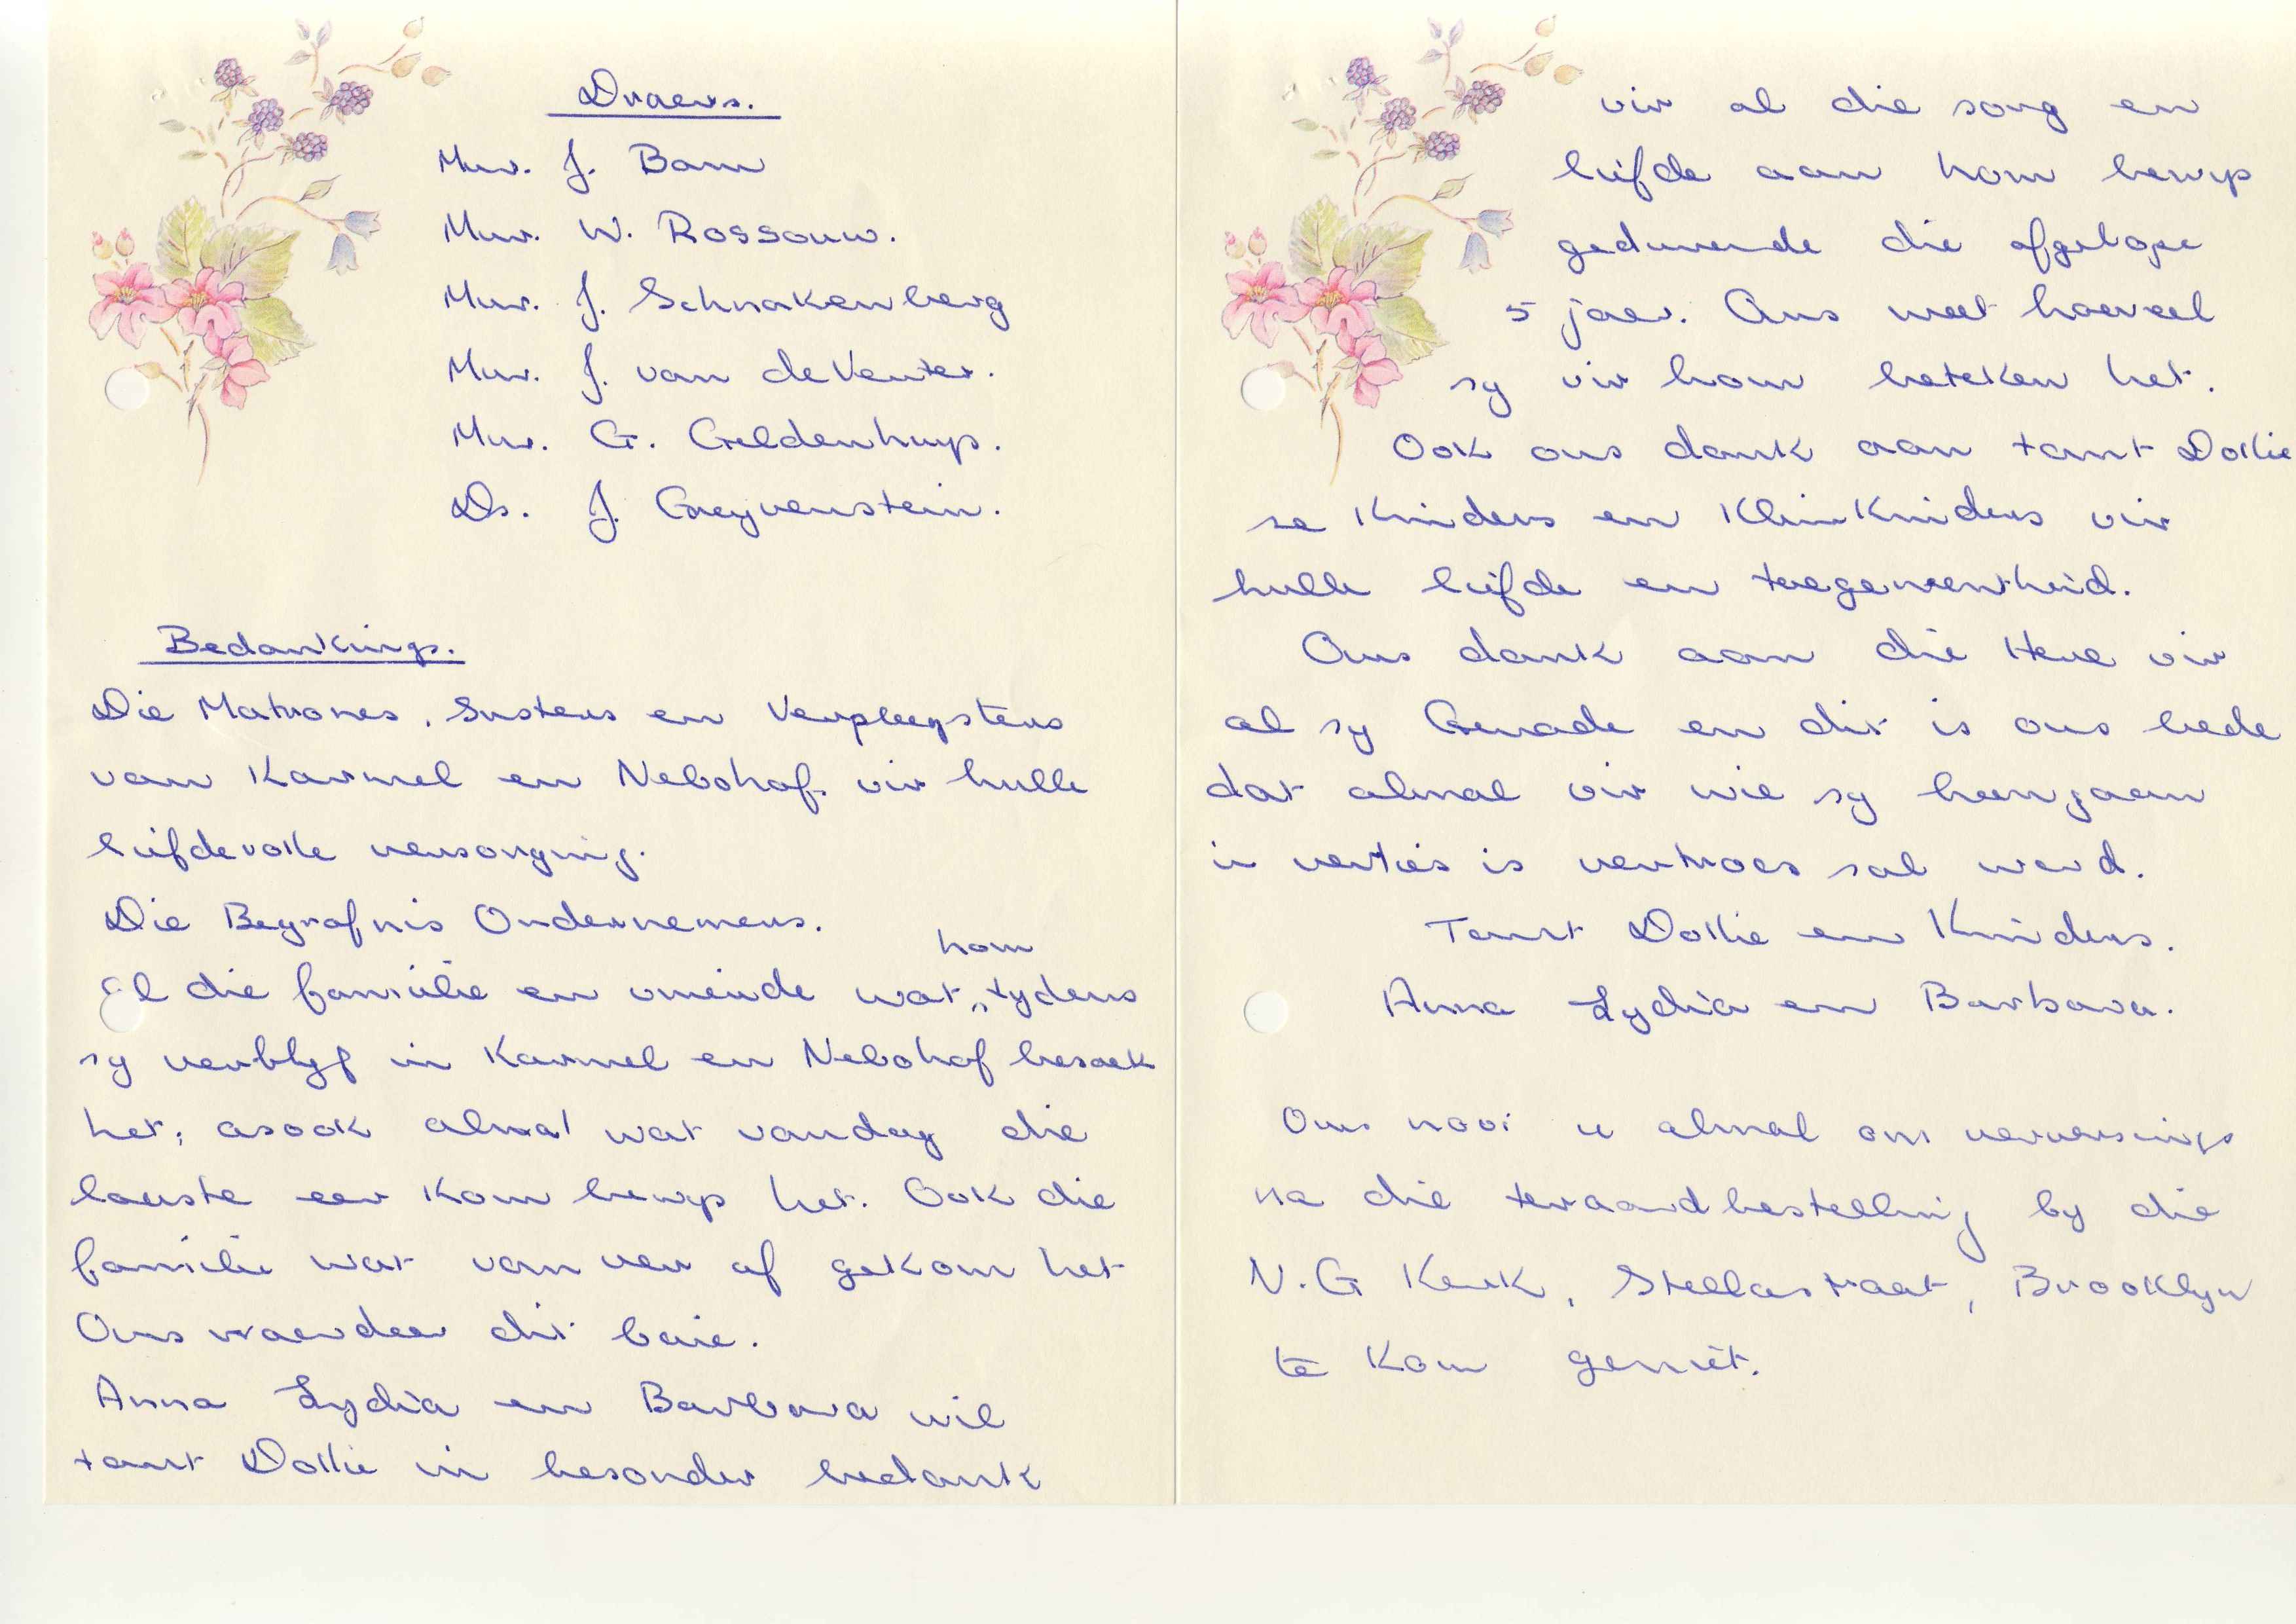 Draers.
Mnr. J. Bam
Mnr. W. Rossouw.
Mnr. J. Schnakenberg
Mnr. J. van deVenter.
Mnr. G. Geldenhuys.
Ds. J. Greyvenstein.
Bedankings.
Die Matrones, Susters en Verpleegsters
van Karmel en Nebohof. vir hulle
liefdevolle versorging.
Die Begrafnis Ondernemers.
hom
Al die familie en vriende wat „ tydens
sy verblyf in Karmel en Nebohof besoek
het; asook almal wat vandag die
laaste eer kom bewys het. Ook die
familie wat van ver af gekom het
Ons waardeer dit baie.
Anna Lydia en Barbara wil
tant Dollie in besonder bedank
vir al die sorg en
liefde aan hom bewys
gedurende die afgelope
5 jaar. Ons weet hoeveel
sy vir hom beteken het.
Ook ons dank aan tant Dollie
se kinders en kleinkinders vir
hulle liefde en toegeneentheid.
Ons dank aan die Here vir
al sy Genade en dit is ons bede
dat almal vir wie sy heengaan
'n verlies is vertroos sal word.
Tant Dollie en Kinders.
Anna Lydia en Barbara.
Ons nooi u almal om verversings
na die teraardbestelling by die
N.G Kerk, Stellastraat, Brooklyn
te kom geniet.